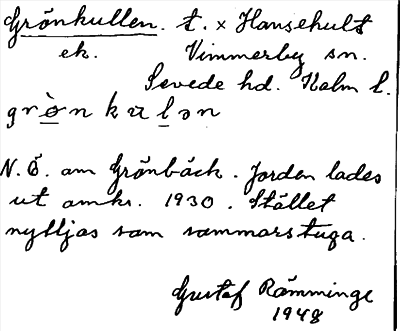 Grönkullen. t. x Hansehult
ek. Vimmerby sn.
Sevede hd. Kalm l.
grò̱n kuḻən
N.Ö. om Grönbäck. Jorden lades
ut omkr. 1930. Stället
nyttjas som sommarstuga.
Gustaf Rämminge
1948